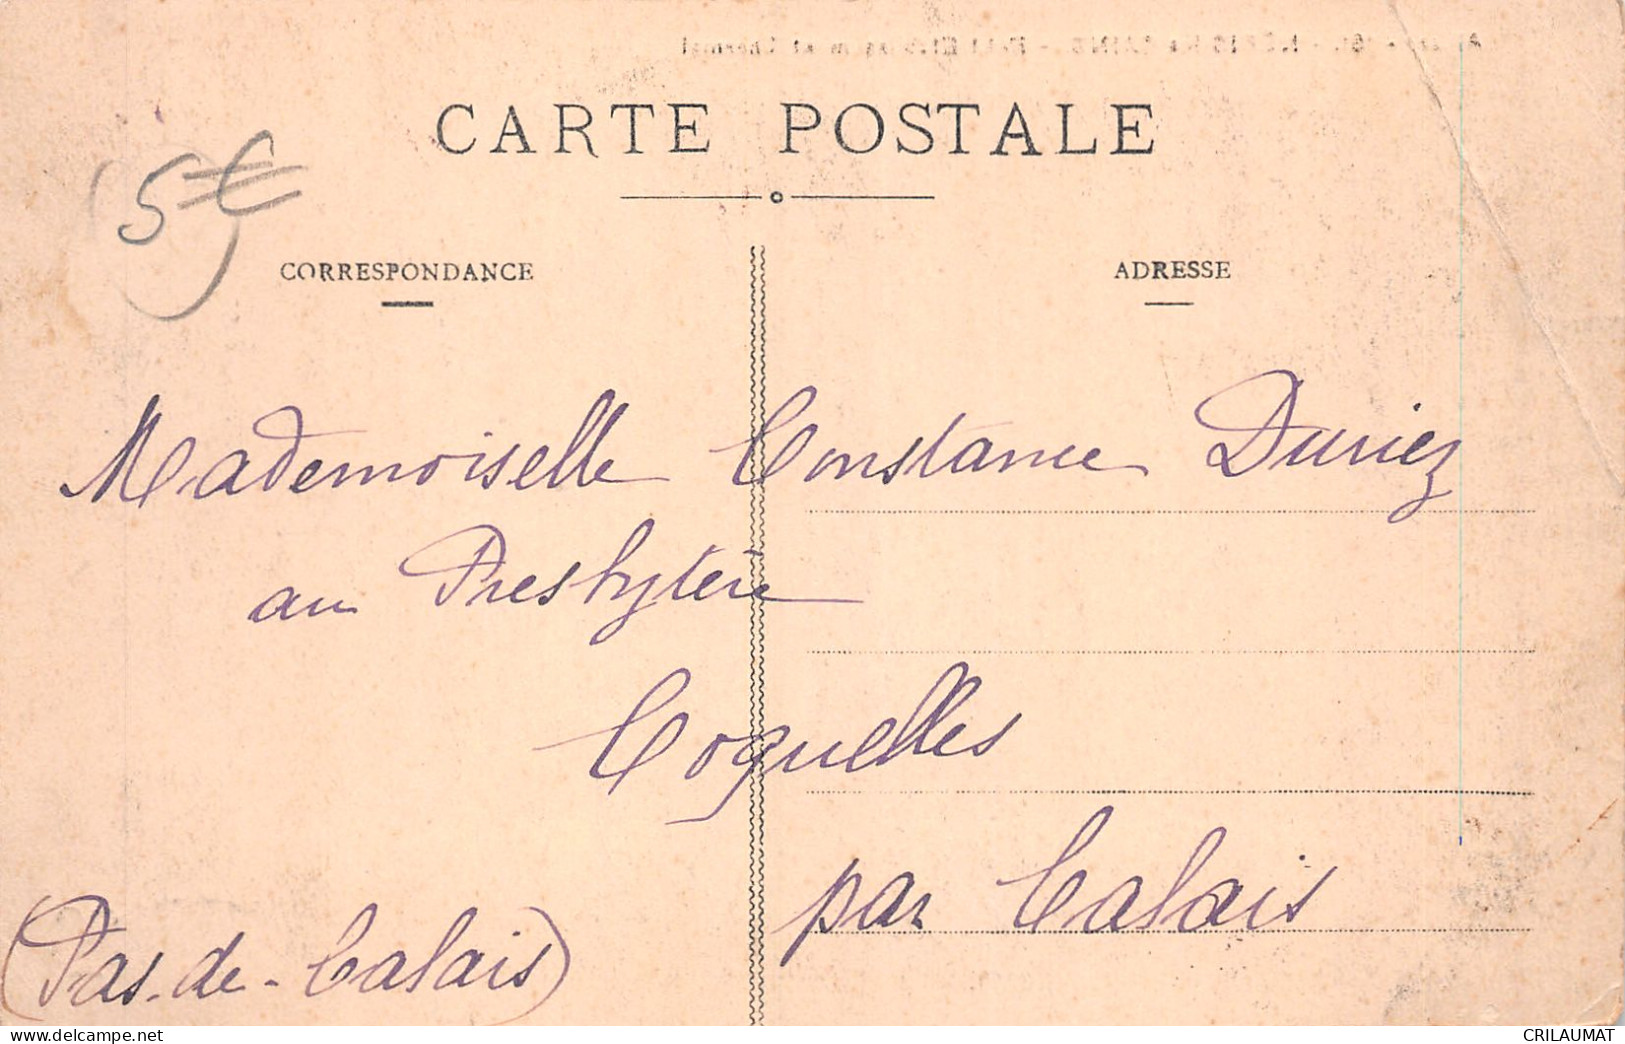 CARTE POSTALE
5€
CORRESPONDANCE
ADRESSE
Mademoiselle Constance Duriez
au Presbytère
Coquelles
par Calais
(Pas-de-Calais)
CRILAUMAT